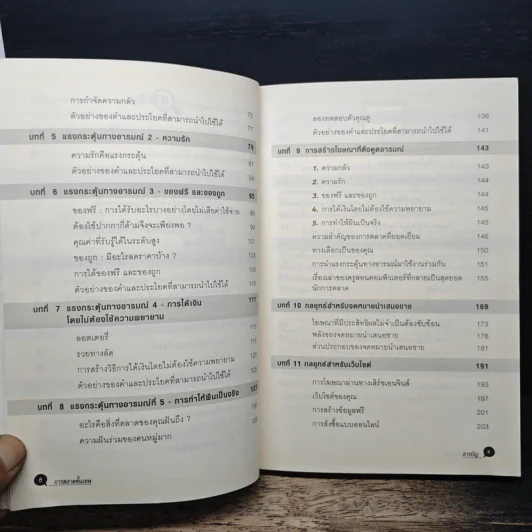 การกำจัดความกลัว 75
ตัวอย่างของคำและประโยคที่สามารถนำไปใช้ได้ 77
บทที่ 5 แรงกระตุ้นทางอารมณ์ 2 - ความรัก 79
ความรักคือแรงกระตุ้น 81
ตัวอย่างของคำและประโยคที่สามารถนำไปใช้ได้ 94
บทที่ 6 แรงกระตุ้นทางอารมณ์ 3 - ของฟรี และของถูก 95
ของฟรี : การได้รับอะไรบางอย่างโดยไม่เสียค่าใช้จ่าย
ต้องใช้ปากกากี่ด้ามจึงจะเพียงพอ ?
คุณค่าที่รับรู้ได้ในระดับสูง
ของถูก : มีอะไรลดราคาบ้าง ?
การได้ของฟรี และของถูก
ตัวอย่างของคำและประโยคที่สามารถนำไปใช้ได้
บทที่ 7 แรงกระตุ้นทางอารมณ์ 4 - การได้เงิน 111
โดยไม่ต้องใช้ความพยายาม
ลอตเตอรี่
รวยทางลัด
การสร้างวิธีการได้เงินโดยไม่ต้องใช้ความพยายาม
ตัวอย่างของคำและประโยคที่สามารถนำไปใช้ได้
บทที่ 8 แรงกระตุ้นทางอารมณ์ที่ 5 - การทำให้ฝันเป็นจริง 127
อะไรคือสิ่งที่ตลาดของคุณฝันถึง ?
ความฝันร่วมของคนหมู่มาก
8 การตลาดขั้นเทพ
ลองทดสอบตัวคุณดู 136
ตัวอย่างของคำและประโยคที่สามารถนำไปใช้ได้ 141
บทที่ 9 การสร้างโฆษณาที่ดึงดูดอารมณ์ 143
1. ความกลัว 144
2. ความรัก 144
3. ของฟรี และของถูก 144
4. การได้เงินโดยไม่ต้องใช้ความพยายาม 145
5. การทำให้ฝันเป็นจริง 145
ความสำคัญของการตลาดที่ยอดเยี่ยม 145
ทางเลือกเป็นของคุณ 150
การนำแรงกระตุ้นทางอารมณ์มาใช้งานร่วมกัน 151
เรื่องเล่าของครูสอนคอมพิวเตอร์ที่กลายเป็นสุดยอด 155
นักการตลาด
บทที่ 10 กลยุทธ์สำหรับจดหมายนำเสนอขาย 169
โฆษณาที่มีประสิทธิผลไม่จำเป็นต้องซับซ้อน 173
พลังของจดหมายนำเสนอขาย 176
ส่วนประกอบของจดหมายนำเสนอขาย 181
บทที่ 11 กลยุทธ์สำหรับเว็บไซต์ 191
การโฆษณาผ่านทางเสิร์ชเอนจินส์ 193
เว็บไซต์ของคุณ 197
การสร้างข้อมูลฟรี 201
การสั่งซื้อแบบออนไลน์ 203
สารบัญ 9